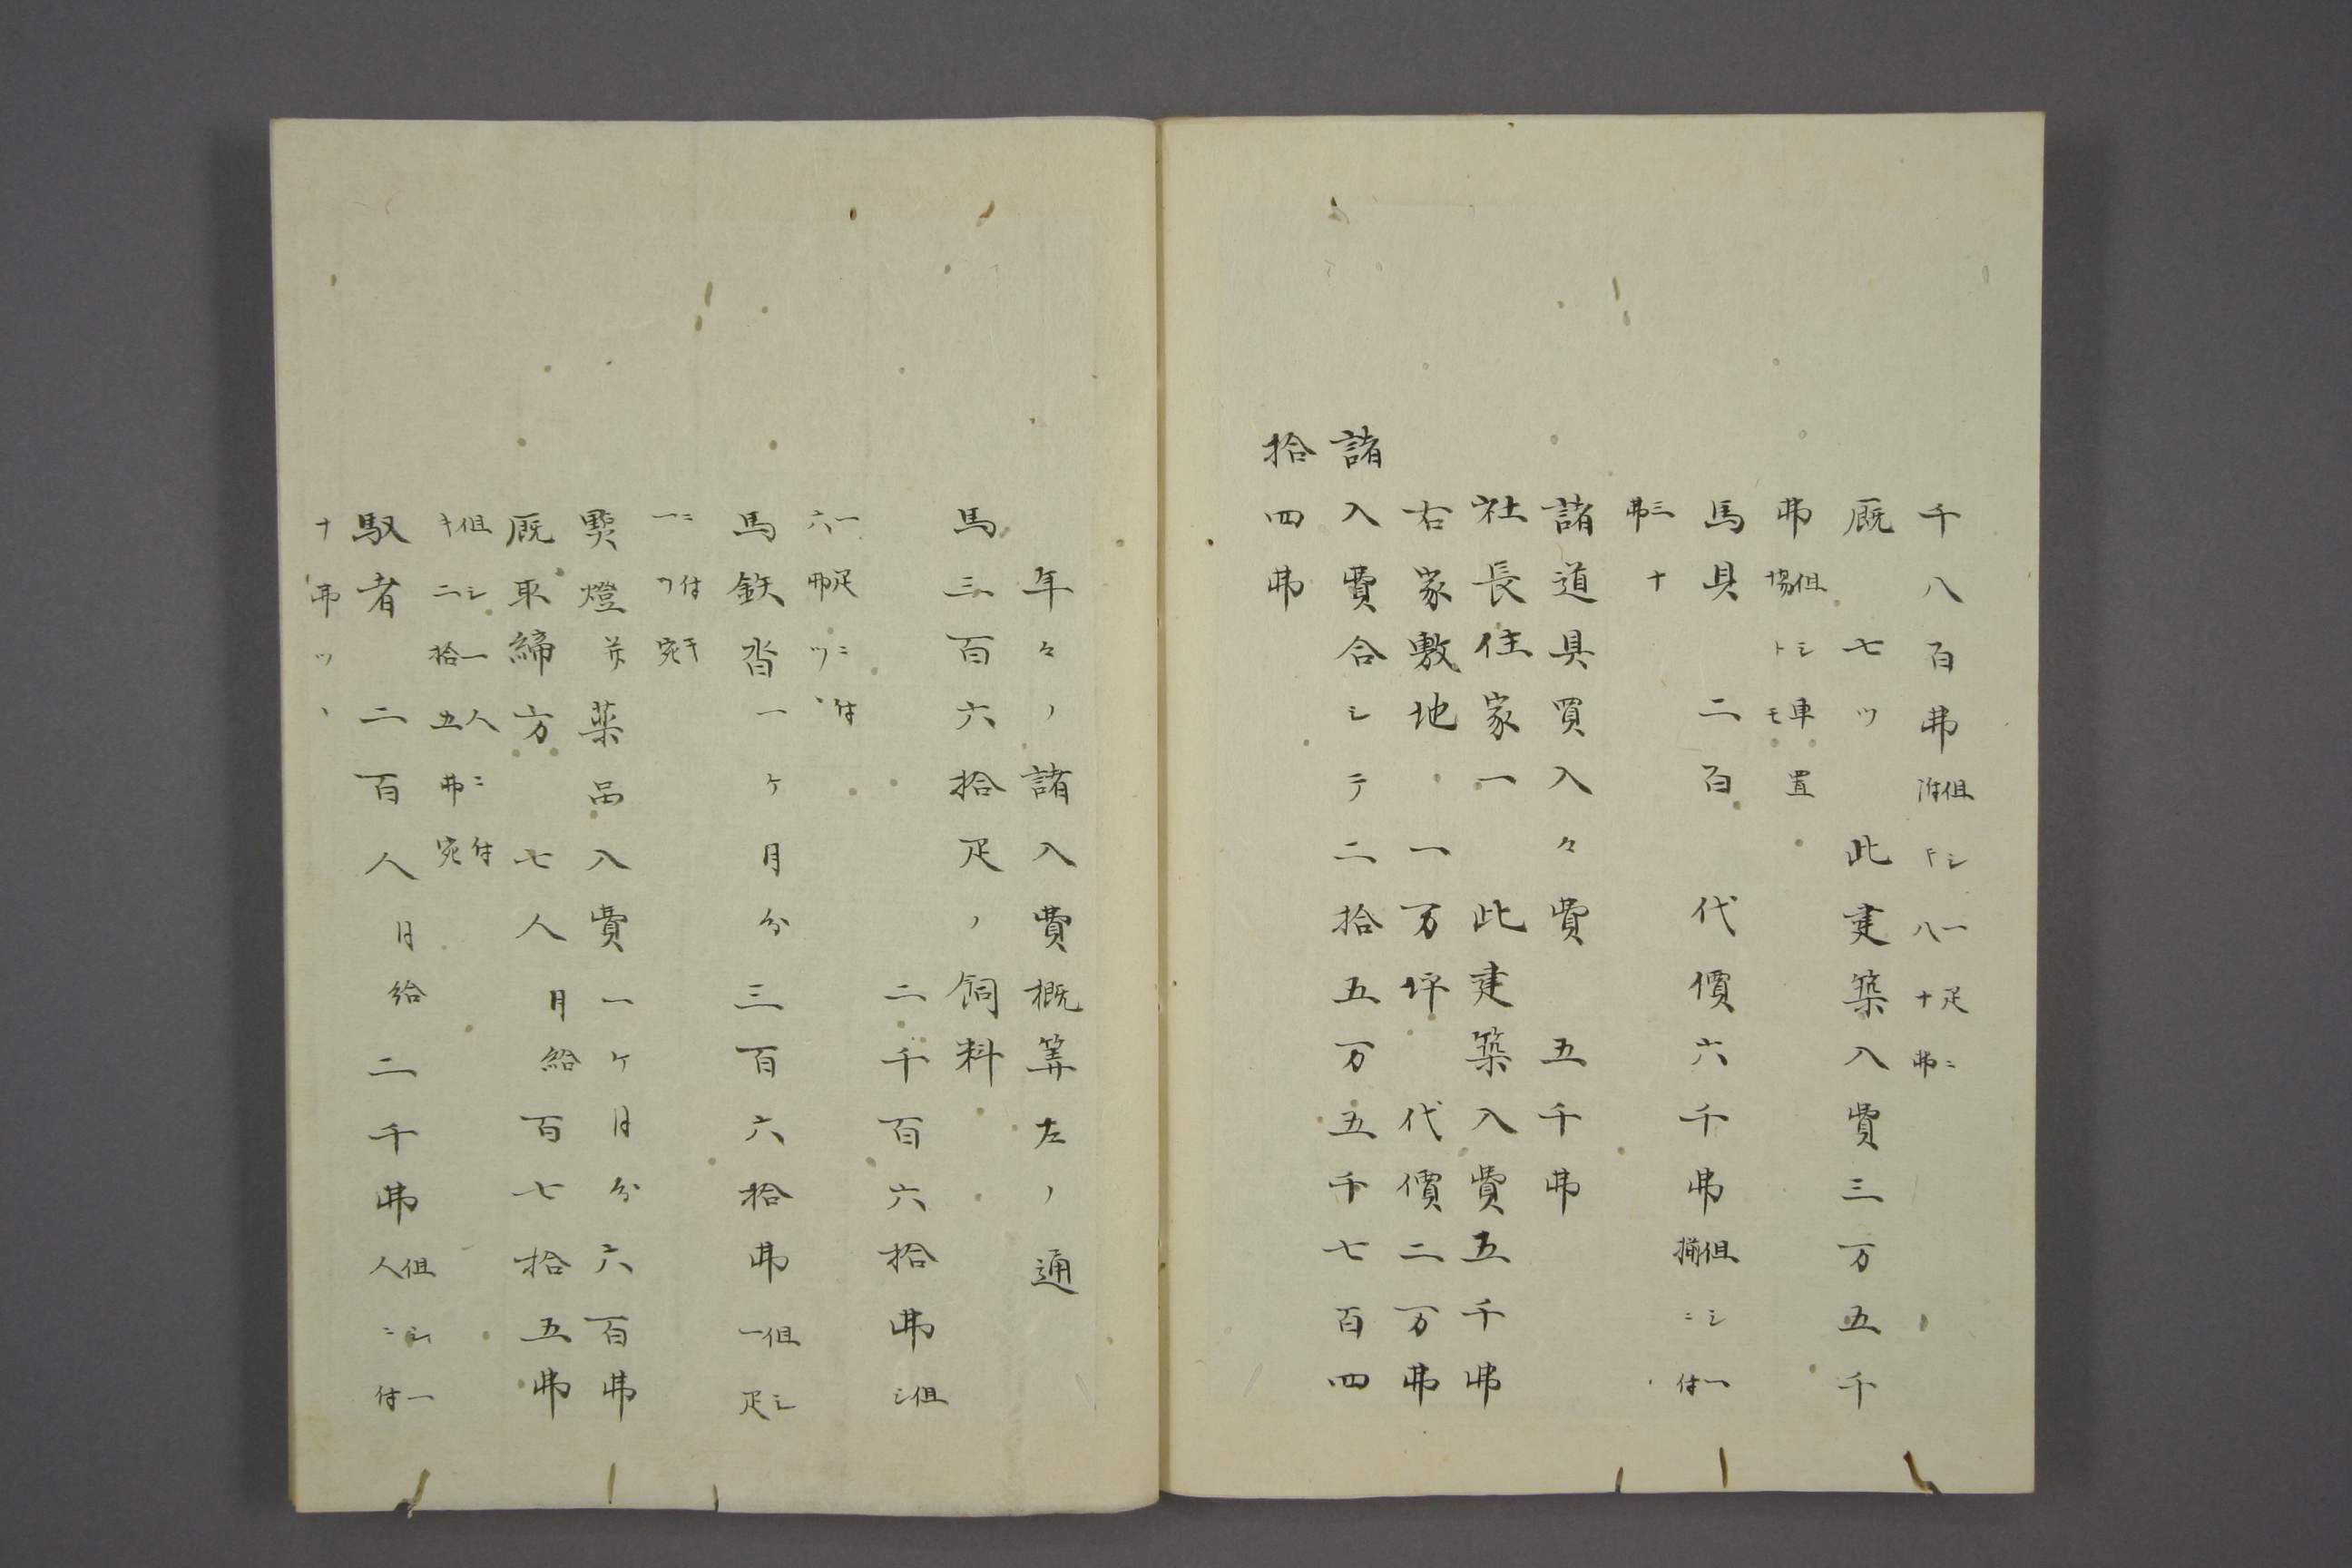 千八百弗 但シ一疋ニ付キ八十弗
厩七ツ 此建築入費三万五千
弗 但シ車置場トモ
馬具 二百 代價六千弗 但シ一揃ニ付
三十弗
諸道具買入々費 五千弗
社長住家一 此建築入費五千弗
右家敷地 一万坪 代價二万弗
諸入費合シテ二拾五万五千七百四
拾四弗
年々ノ諸入費概筭左ノ通
馬三百六拾疋ノ飼料
二千百六拾弗 但シ
一疋ニ付六弗ツヽ
馬鉄沓一ヶ月分三百六拾弗 但シ一疋
ニ付キ一ツ宛
燈并薬品入費一ヶ月分六百弗
厩取締方 七人 月給百七拾五弗
但シ一人ニ付キ二拾五弗宛
馭者 二百人 月給二千弗 但シ一人ニ付
十弗ツヽ